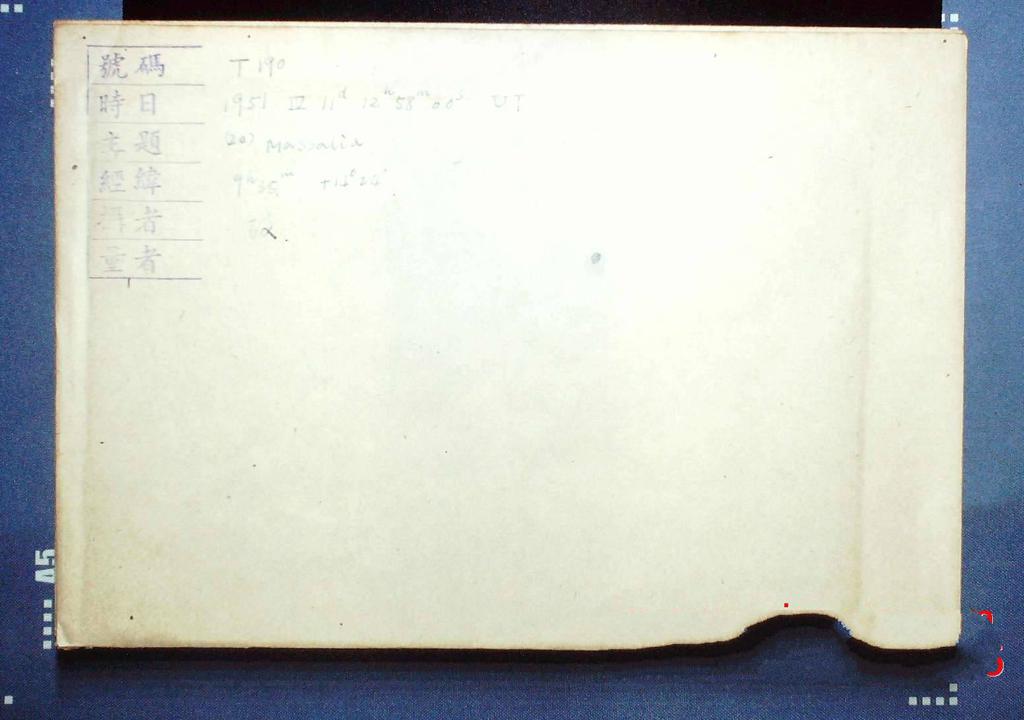 號碼 T 190
時日 1951 IV 11ᵈ 12ʰ 58ᵐ 00ˢ UT
主題 (20) Massalia
經緯 9ʰ 35ᵐ +14° 24'
者
量者
A5